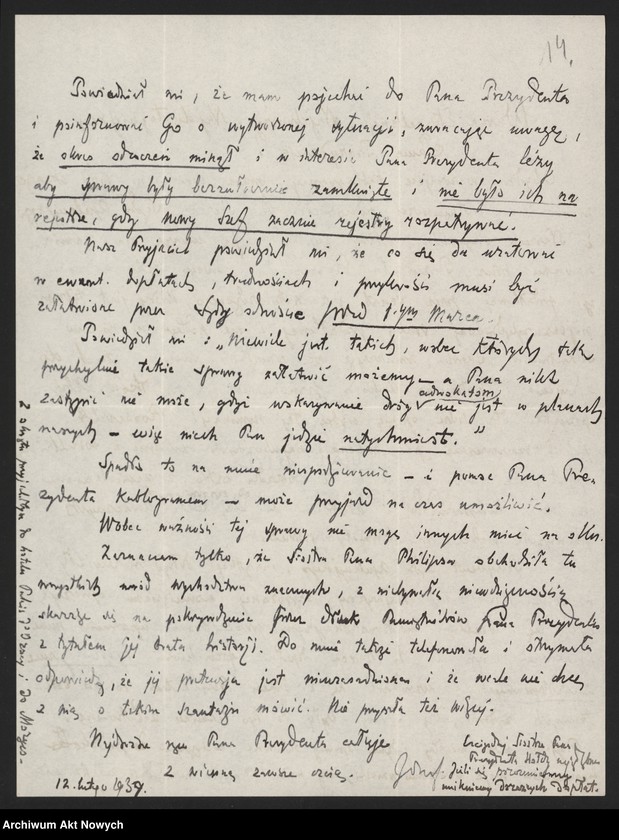 14.
Powiedział mi, że mam pojechać do Pana Prezydenta
i poinformować Go o wytworzonej sytuacji, zwracając uwagę,
że okres odroczeń minął i w interesie Pana Prezydenta leży
aby sprawy były bezzwłocznie zamknięte i nie było ich na
rejestrze, gdy nowy Szef zacznie rejestry rozpatrywać.
Nasz Przyjaciel powiedział mi, że co się da uratować
w ewent. dopłatach, trudnościach i przykrości musi być
załatwione przez przed 1-ym Marca.
Powiedział mi: „Niewiele jest takich, wobec których tak
przychylnie takie sprawy załatwić możemy – a Pana nikt
zastąpić nie może, gdyż wskazywanie dróg adwokatom nie jest w planach
naszych – więc niech Pan jedzie natychmiast."
Spadło to na mnie niespodziewanie – i pomoc Pana Pre-
zydenta kablogramem – może przyjazd na czas umożliwić.
Wobec ważności tej sprawy nie mogę innych mieć na oku.
Zaznaczam tylko, że Siostra Pana Philipsa obchodziła tu
wszystkich wśród wychodztwa znacznych, z niebywałą
skarżąc się na pokrzywdzenie przez Pamiętników Pana Prezydenta
z tytułem jej brata historji. Do mnie także telefonowała i otrzymała
odpowiedź, że jej pretensja jest nieuzasadniona i że wcale nie chcę
z nią o takim szantażu mówić. Nie przyszła też więcej.
Najdroższe ręce Pana Prezydenta całuję
z wierną zawsze czcią.
Józef.
12. lutego 1939.
Czcigodnej Siostrze Pana
Prezydenta Hołdy
Jeśli się porozumiemy
unikniemy dopłat.
Z okrętu przyjechałbym do hotelu i do Morges.